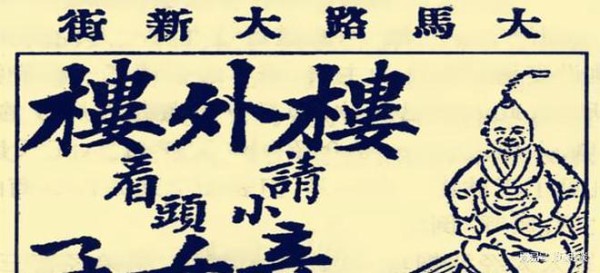 大馬路大新街
樓外樓
請看
小頭